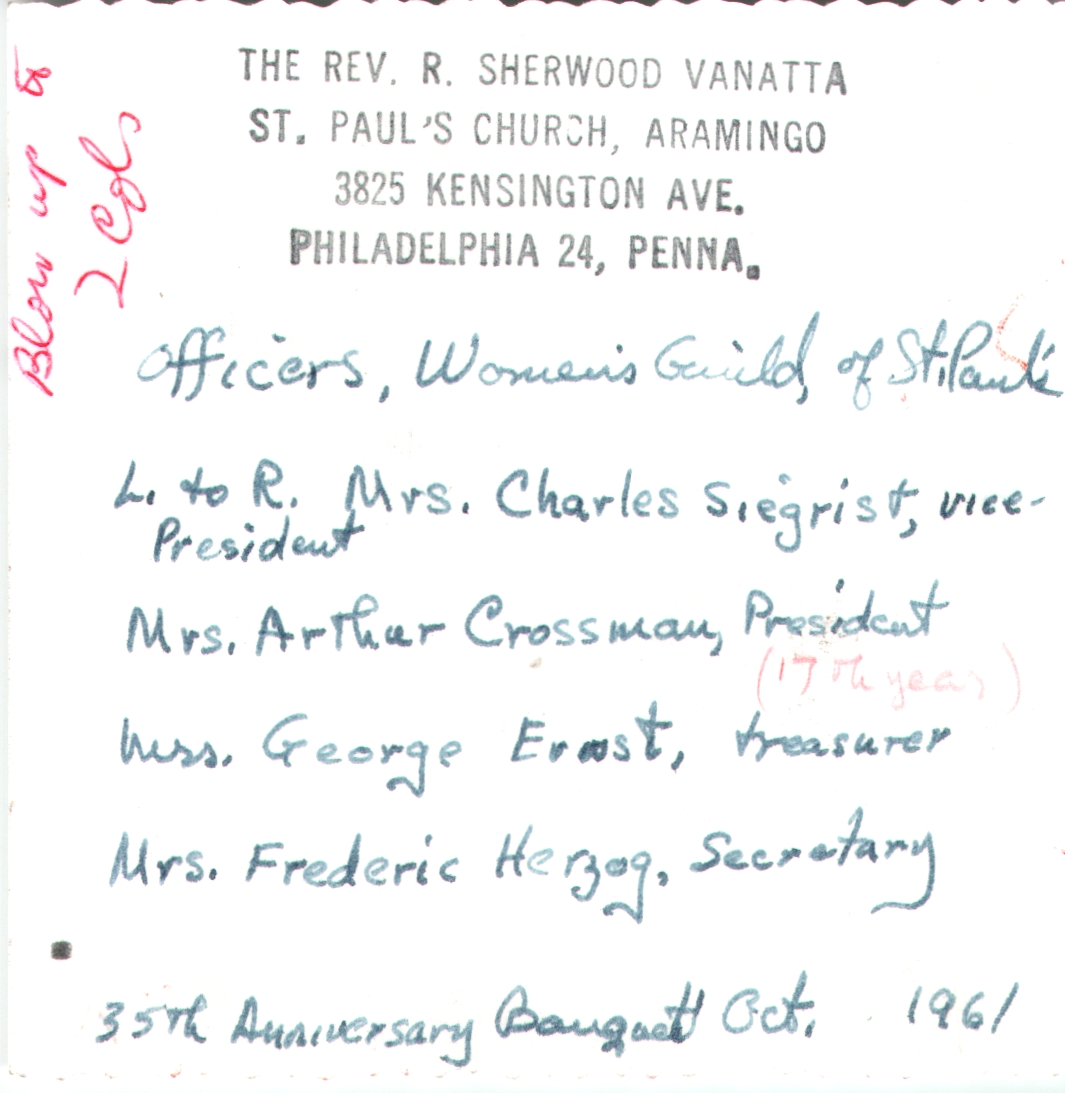 Blow up to
2 Cols
THE REV. R. SHERWOOD VANATTA
ST. PAUL'S CHURCH, ARAMINGO
3825 KENSINGTON AVE.
PHILADELPHIA 24, PENNA.
Officers, Women's Guild, of St. Paul's
L. to R. Mrs. Charles Siegrist, vice-
President
Mrs. Arthur Crossman, President
(17th year)
Mrs. George Ernst, treasurer
Mrs. Frederic Herzog, Secretary
35th Anniversary Banquet Oct. 1961